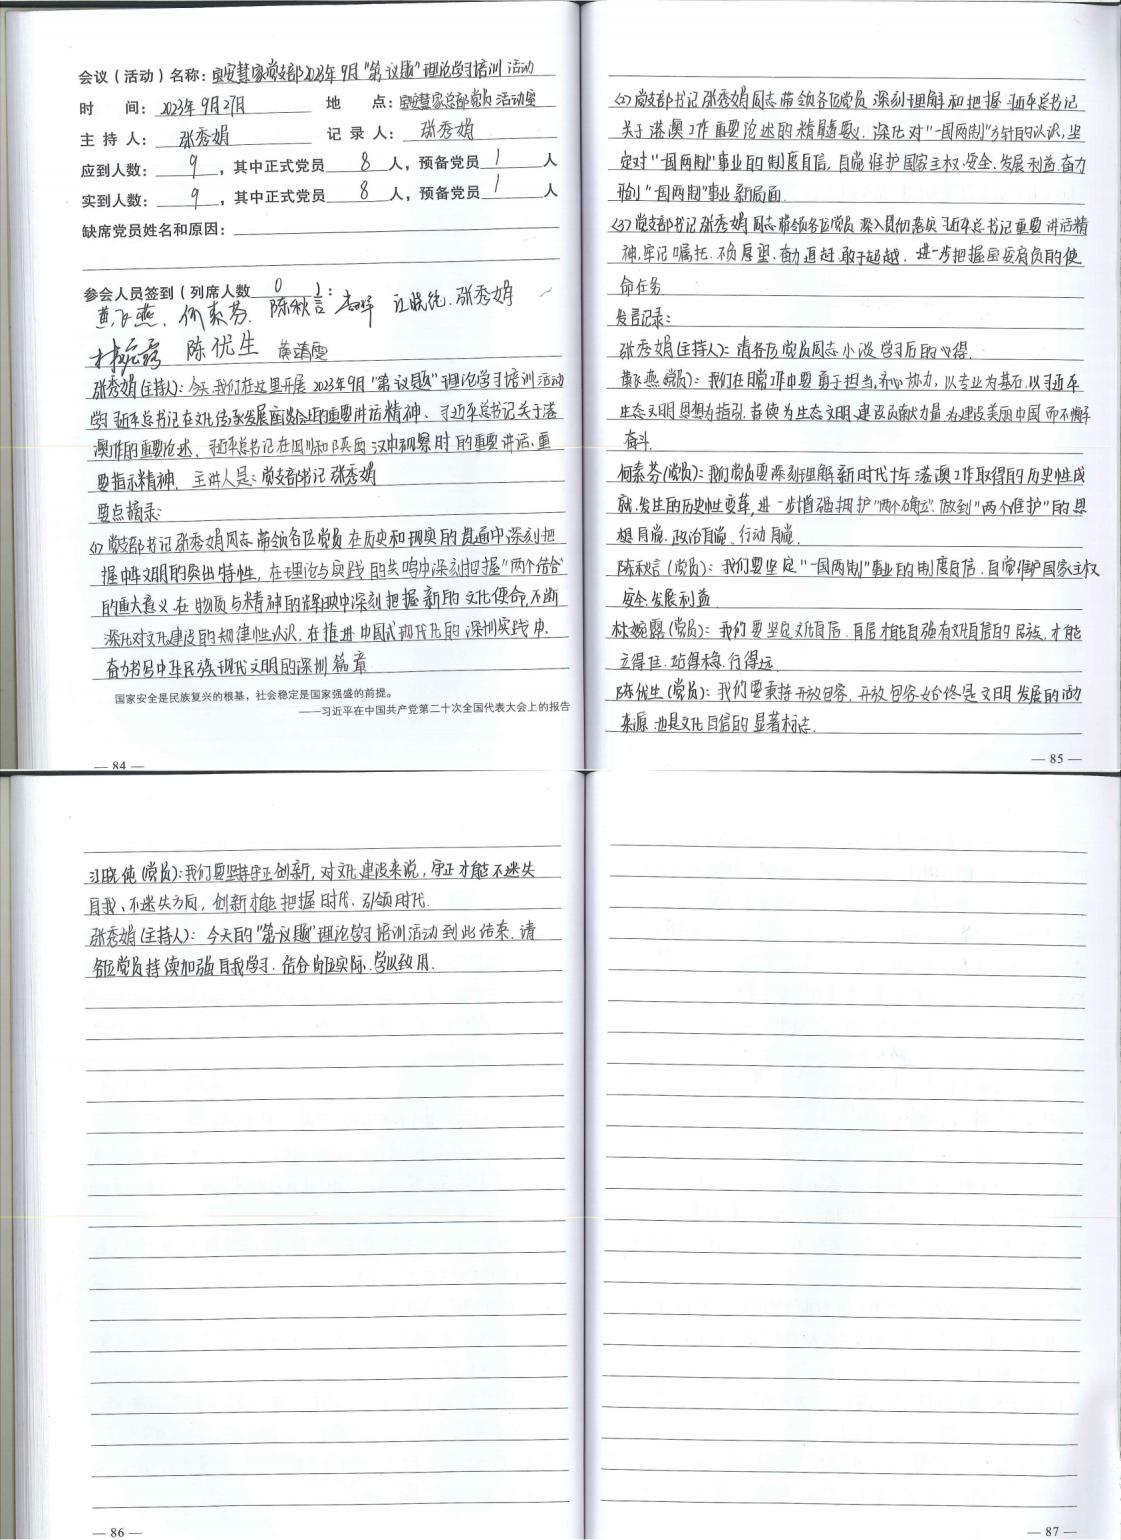 会议（活动）名称：宝安慧家党支部2023年9月"第一议题"理论学习培训活动
时 间：2023年9月27日 地 点：宝安慧家总部党员活动室
主 持 人：张秀娟 记 录 人：张秀娟
应到人数：9，其中正式党员8人，预备党员1人
实到人数：9，其中正式党员8人，预备党员1人
缺席党员姓名和原因：
参会人员签到（列席人数0）：
黄飞燕、何素芬、陈秋言 江晓纯、张秀娟
林婉露 陈优生 黄靖雯
张秀娟（主持人）：今天我们在这里开展2023年9月"第一议题"理论学习培训活动
学习习近平总书记在文化传承发展座谈会上的重要讲话精神、习近平总书记关于港
澳工作的重要论述、习近平总书记在四川和陕西汉中视察时的重要讲话、重
要指示精神，主讲人是：党支部书记张秀娟
要点摘录：
(1) 党支部书记张秀娟同志带领各位党员在历史和现实的贯通中深刻把
握中华文明的突出特性，在理论与实践的共鸣中深刻把握"两个结合"
的重大意义，在物质与精神的辉映中深刻把握新的文化使命，不断
深化对文化建设的规律性认识，在推进中国式现代化的深圳实践中，
奋力书写中华民族现代文明的深圳篇章
国家安全是民族复兴的根基，社会稳定是国家强盛的前提。
——习近平在中国共产党第二十次全国代表大会上的报告
— 84 —
(2) 党支部书记张秀娟同志带领各位党员深刻理解和把握习近平总书记
关于港澳工作重要论述的精髓要义，深化对"一国两制"方针的认识，坚
定对"一国两制"事业的制度自信，自觉维护国家主权、安全、发展利益，奋力
开创"一国两制"事业新局面
(3) 党支部书记张秀娟同志带领各位党员深入贯彻落实习近平总书记重要讲话精
神，牢记嘱托、不负厚望、奋力追赶、敢于超越，进一步把握宝安肩负的使
命任务
发言记录：
张秀娟（主持人）：请各位党员同志小谈学习后的心得。
黄飞燕（党员）：我们在日常工作中要勇于担当，齐心协力，以专业为基石，以习近平
生态文明思想为指引，持续为生态文明建设贡献力量，为建设美丽中国而不懈
奋斗.
何素芬（党员）：我们党员要深刻理解新时代十年港澳工作取得的历史性成
就、发生的历史性变革，进一步增强拥护"两个确立"、做到"两个维护"的思
想自觉、政治自觉、行动自觉.
陈秋言（党员）：我们要坚定"一国两制"事业的制度自信，自觉维护国家主权
安全、发展利益
林婉露（党员）：我们要坚定文化自信，自信才能自强，有文化自信的民族，才能
立得住、站得稳、行得远
陈优生（党员）：我们要秉持开放包容，开放包容始终是文明发展的活动
来源，也是文化自信的显著标志.
— 85 —
江晓纯（党员）：我们要坚持守正创新，对文化建设来说，守正才能不迷失
自我、不迷失方向，创新才能把握时代、引领时代.
张秀娟（主持人）：今天的"第一议题"理论学习培训活动到此结束，请
各位党员持续加强自我学习，结合岗位实际，学以致用.
— 86 —
— 87 —